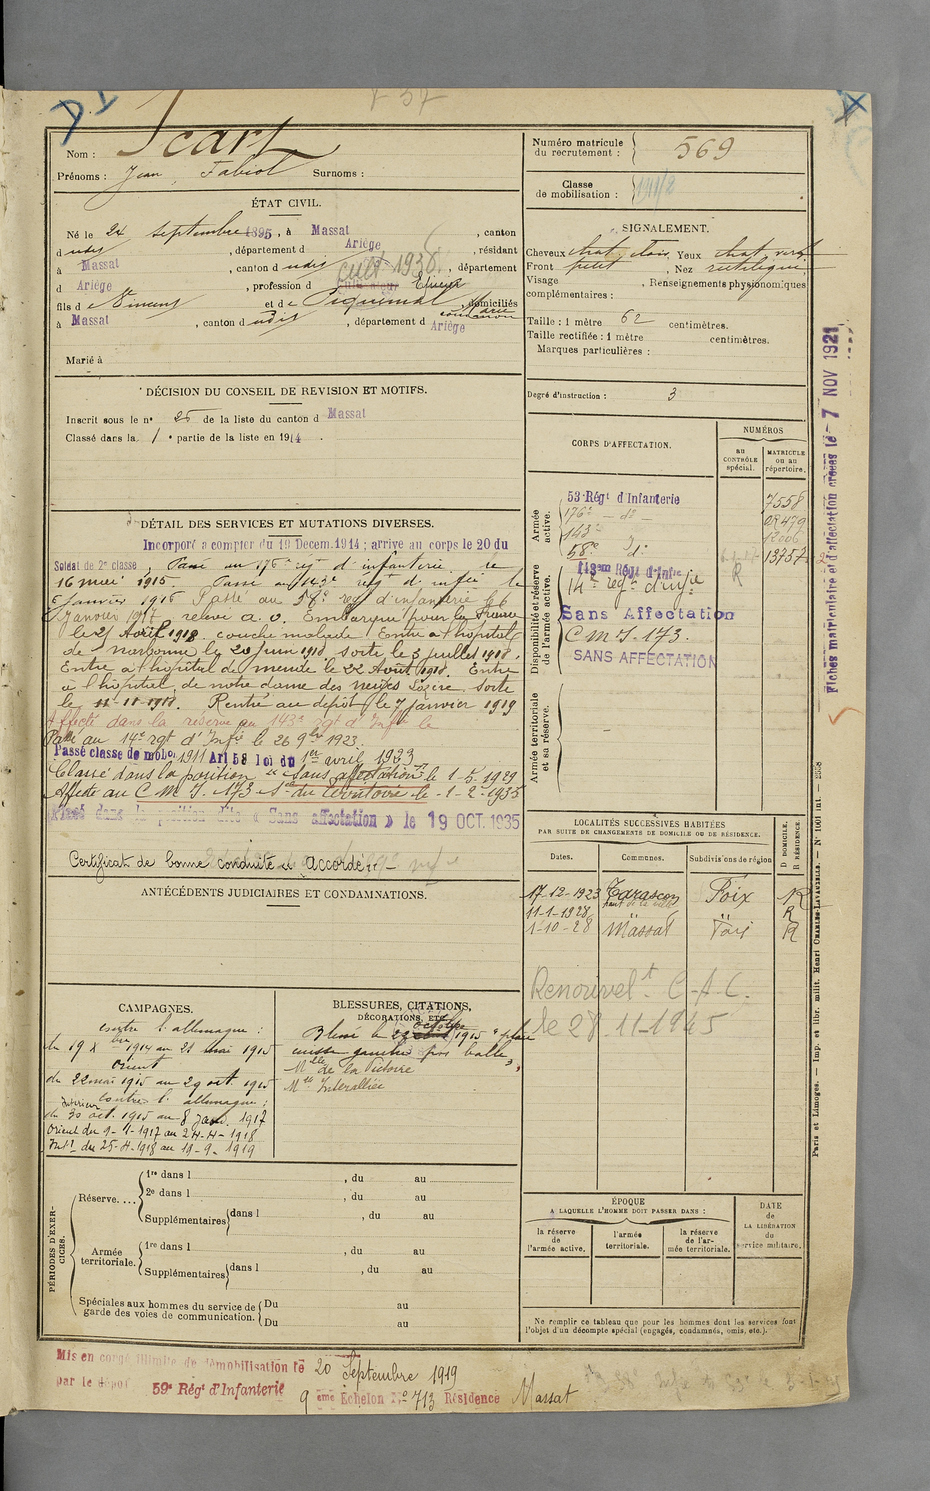 Nom : Icart
Prénoms : Jean, Fabiol Surnoms :
Numéro matricule du recrutement : 569
Classe de mobilisation : 1911/2
ÉTAT CIVIL.
Né le 24 septembre 1895, à Massat, canton
dudit, département d Ariège, résidant
à Massat, canton dudit, département
d Ariège, profession d cultivateur Epicier
cult 1938
fils de Vincent et de Piquemal Marie, domiciliés
à Massat, canton dudit, département d Ariège
Marié à
SIGNALEMENT.
Cheveux chat clair Yeux chat vert
Front petit, Nez rectiligne
Visage , Renseignements physionomiques
complémentaires :
Taille : 1 mètre 62 centimètres.
Taille rectifiée : 1 mètre centimètres.
Marques particulières :
Degré d'instruction : 3
DÉCISION DU CONSEIL DE REVISION ET MOTIFS.
Inscrit sous le n° 25 de la liste du canton d Massat
Classé dans la 1° partie de la liste en 1914.
DÉTAIL DES SERVICES ET MUTATIONS DIVERSES.
Incorporé à compter du 19 Décem. 1914 ; arrivé au corps le 20 du
Soldat de 2e classe, Passé au 176e régt d'infanterie le
16 mai 1915. Passé au 143e régt d. infie le
6 Janvier 1916 Passé au 58e rég d'infanterie le 6
Janvier 1917 relevé a. o. Embarqué pour la France
le 21 Avril 1918. couché malade Entré à l'hôpital
de Narbonne le 20 juin 1918 sorti le 3 juillet 1918.
Entré à l'hôpital de mende le 22 Août 1918. Entré
à l'hôpital de notre dame des neiges Lozère, sorti
le 11-11-1918. Rentré au dépôt le 7 janvier 1919
Affecté dans la réserve au 143e rgt d'Infie le
Passé au 14e rgt d'Infie le 26 9bre 1923
Passé classe de mobon 1911 Art 58 loi du 1er avril 1923
Classé dans la position "Sans affectation" le 1-5-1929
Affecté au C M I. 173 Son du territoire le 1-2-1935
Placé dans la position dite « Sans affectation » le 19 OCT. 1935
Certificat de bonne conduite accordé
ANTÉCÉDENTS JUDICIAIRES ET CONDAMNATIONS.
CORPS D'AFFECTATION.
NUMÉROS
au CONTRÔLE spécial.
MATRICULE ou au répertoire.
Armée active.
53e Régt d'Infanterie 7558
176e — do —
143e 12006
58e do 13757
Disponibilité et réserve de l'armée active.
143em Régt d'Infie R
14e régt d'infie
Sans Affectation
C M I. 173.
SANS AFFECTATION
Armée territoriale et sa réserve.
LOCALITÉS SUCCESSIVES HABITÉES
PAR SUITE DE CHANGEMENTS DE DOMICILE OU DE RÉSIDENCE.
Dates. Communes. Subdivisions de région D DOMICILE. R RÉSIDENCE.
17-12-1923 Tarascon Foix R
11-1-1928 haut de la ville " R
1-10-28 Massat Foix R
Renouvelt C-A-C.
le 28-11-1945
CAMPAGNES.
contre l'allemagne :
du 19 Xbre 1914 au 21 mai 1915
Orient
du 22 mai 1915 au 29 oct 1915
Intérieur contre l'allemagne ;
du 30 oct. 1915 au 8 Janv. 1917
Orient du 9-1-1917 au 24-4-1918
Intr du 25-4-1918 au 19-9-1919
BLESSURES, CITATIONS,
DÉCORATIONS, ETC.
Blessé le 22 octobre 1915 "plaie
cuisse gauche par balle".
Mlle de la Victoire
Mlle Interalliée
PÉRIODES D'EXERCICES.
Réserve....
1re dans l , du au
2e dans l , du au
Supplémentaires dans l , du au
Armée territoriale.
1re dans l , du au
Supplémentaires dans l , du au
Spéciales aux hommes du service de garde des voies de communication.
Du au
Du au
ÉPOQUE
A LAQUELLE L'HOMME DOIT PASSER DANS :
la réserve de l'armée active.
l'armée territoriale.
la réserve de l'armée territoriale.
DATE de LA LIBÉRATION du service militaire.
Ne remplir ce tableau que pour les hommes dont les services font
l'objet d'un décompte spécial (engagés, condamnés, omis, etc.).
Mis en congé illimité de démobilisation le 20 Septembre 1919
par le dépôt 59e Régt d'Infanterie
9 ème Echelon No 713 Résidence Massat
Fiches matriculaire et d'affectation créées le 7 NOV 1921
Paris et Limoges. — Imp. et libr. milit. Henri CHARLES-LAVAUZELLE. — N° 1001 int. — 2558